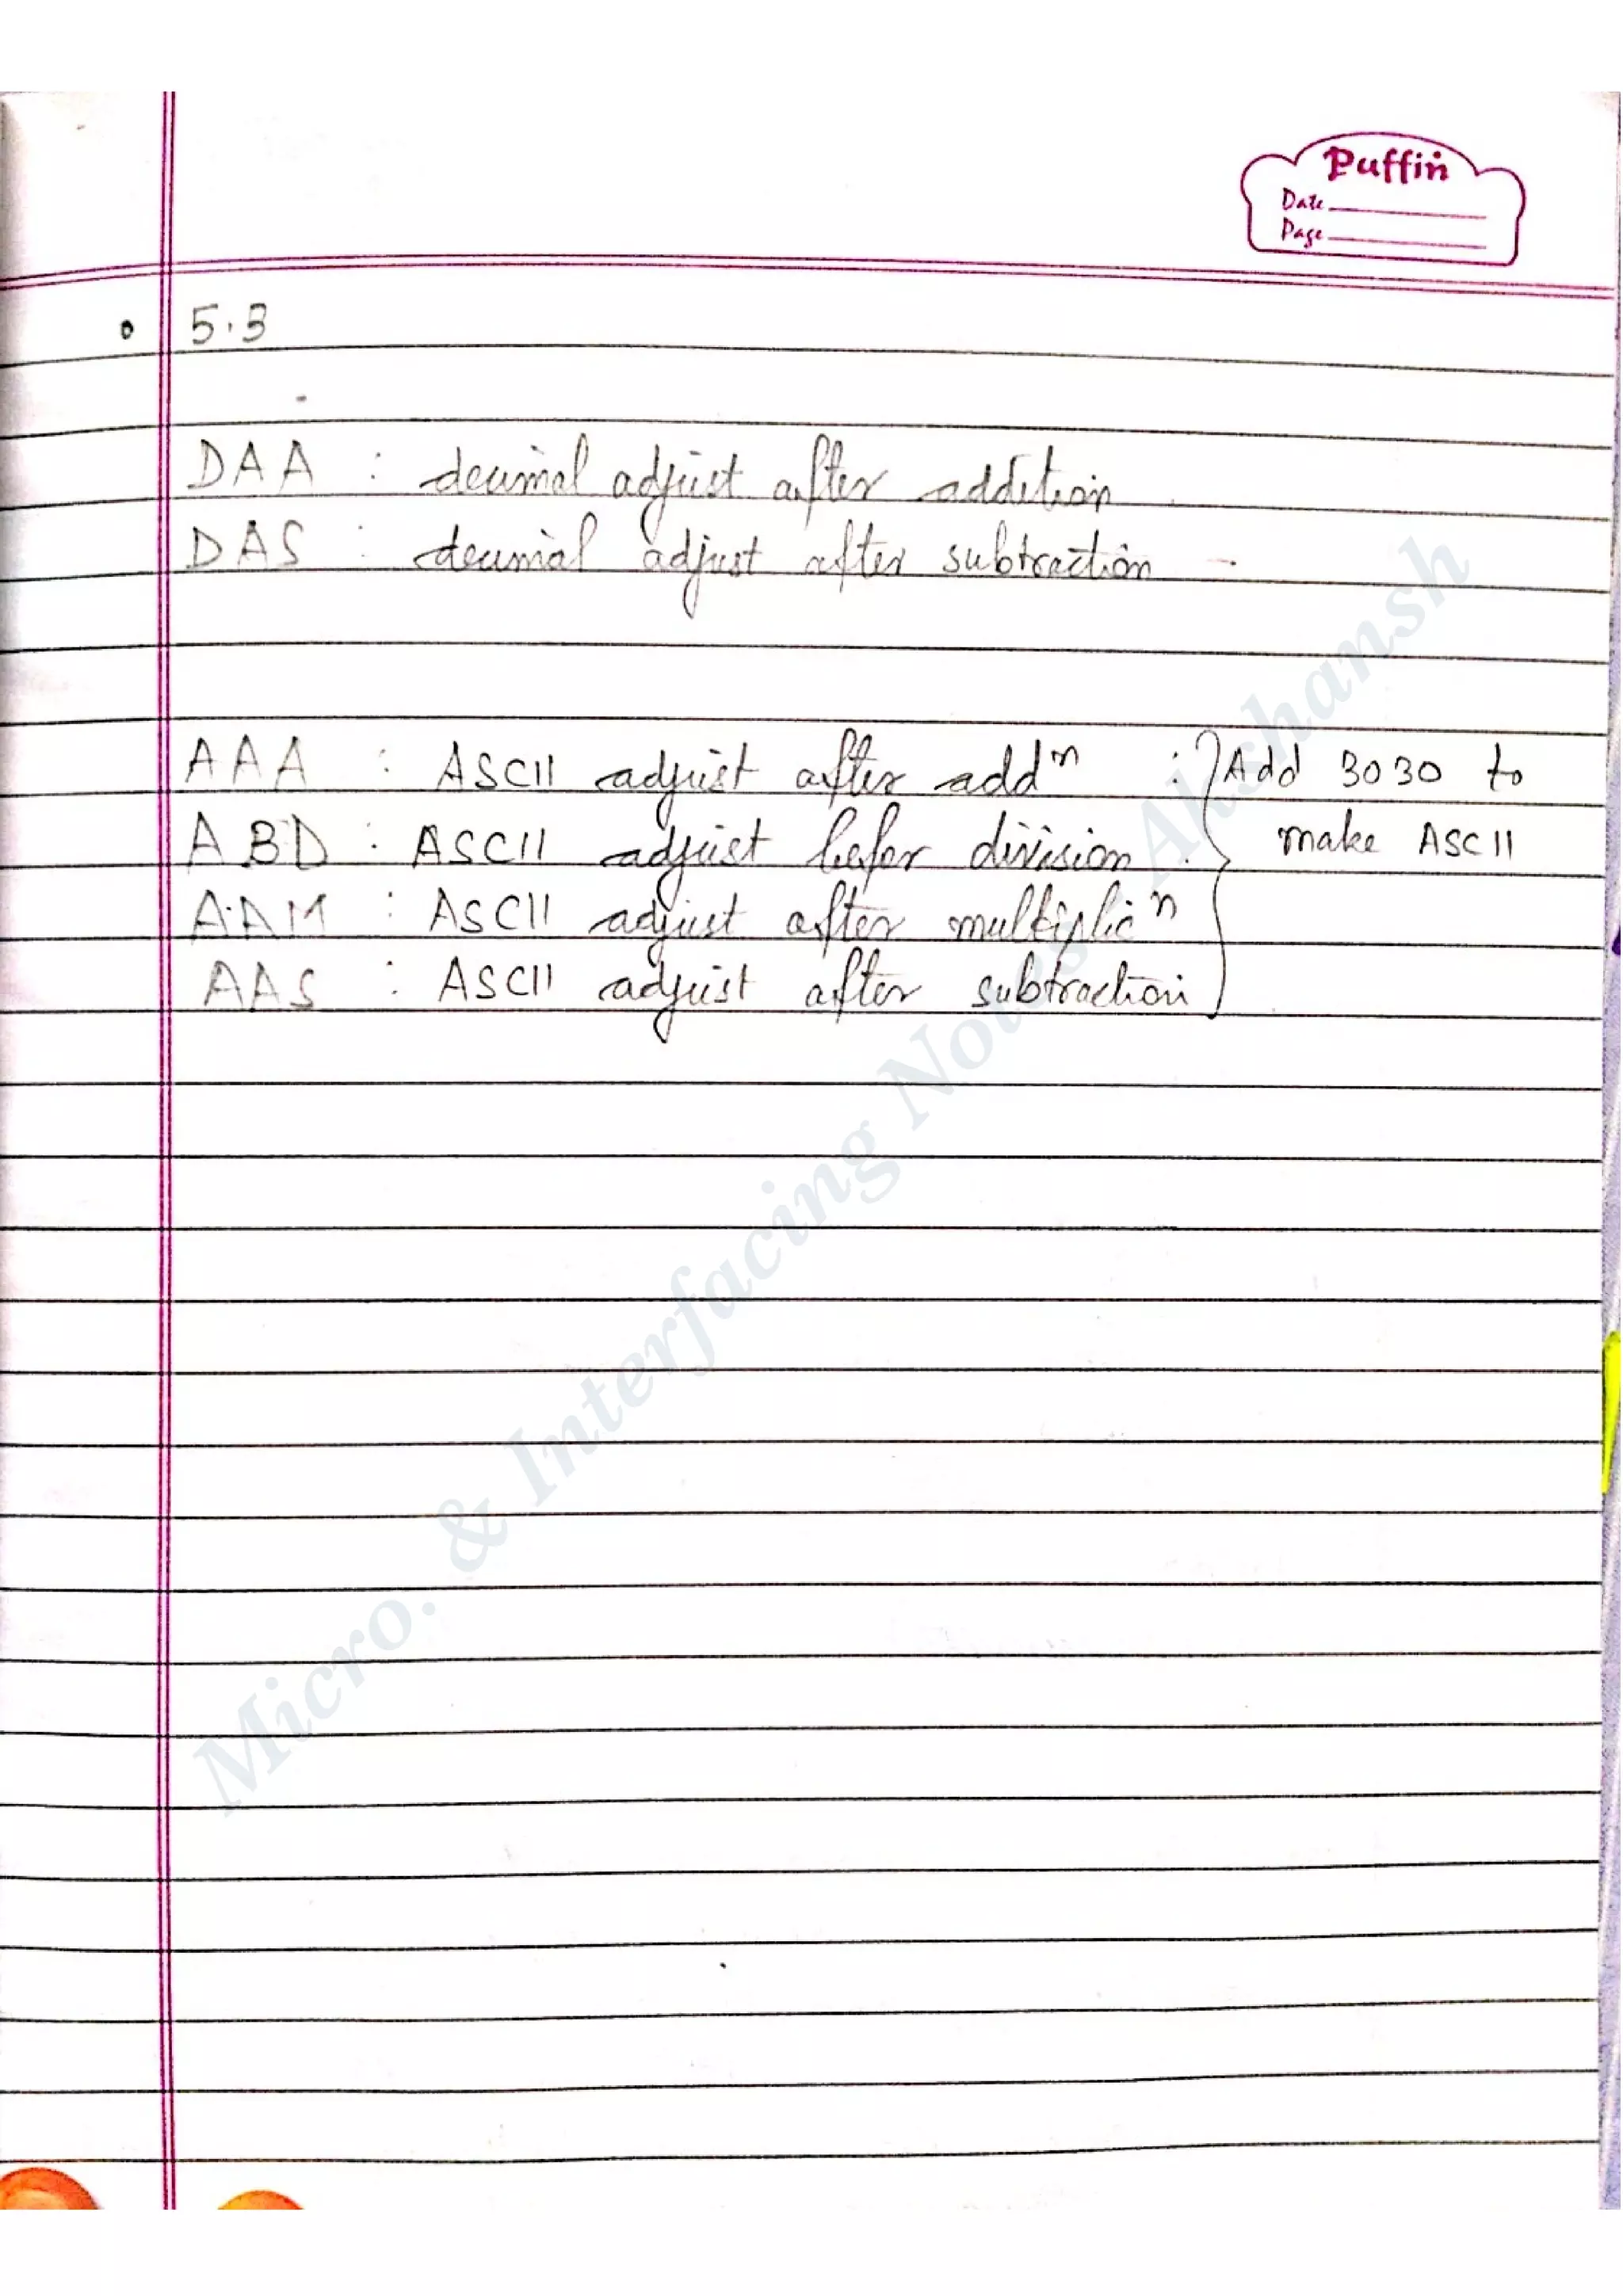 Puffin
Date
Page
5.3
DAA : decimal adjust after addition
DAS : decimal adjust after subtraction
AAA : ASCII adjust after addⁿ : Add 3030 to
ABD : ASCII adjust befor division : make ASCII
AAM : ASCII adjust after multiplicⁿ
AAS : ASCII adjust after subtraction
Micro. & Interfacing Notes Akshansh